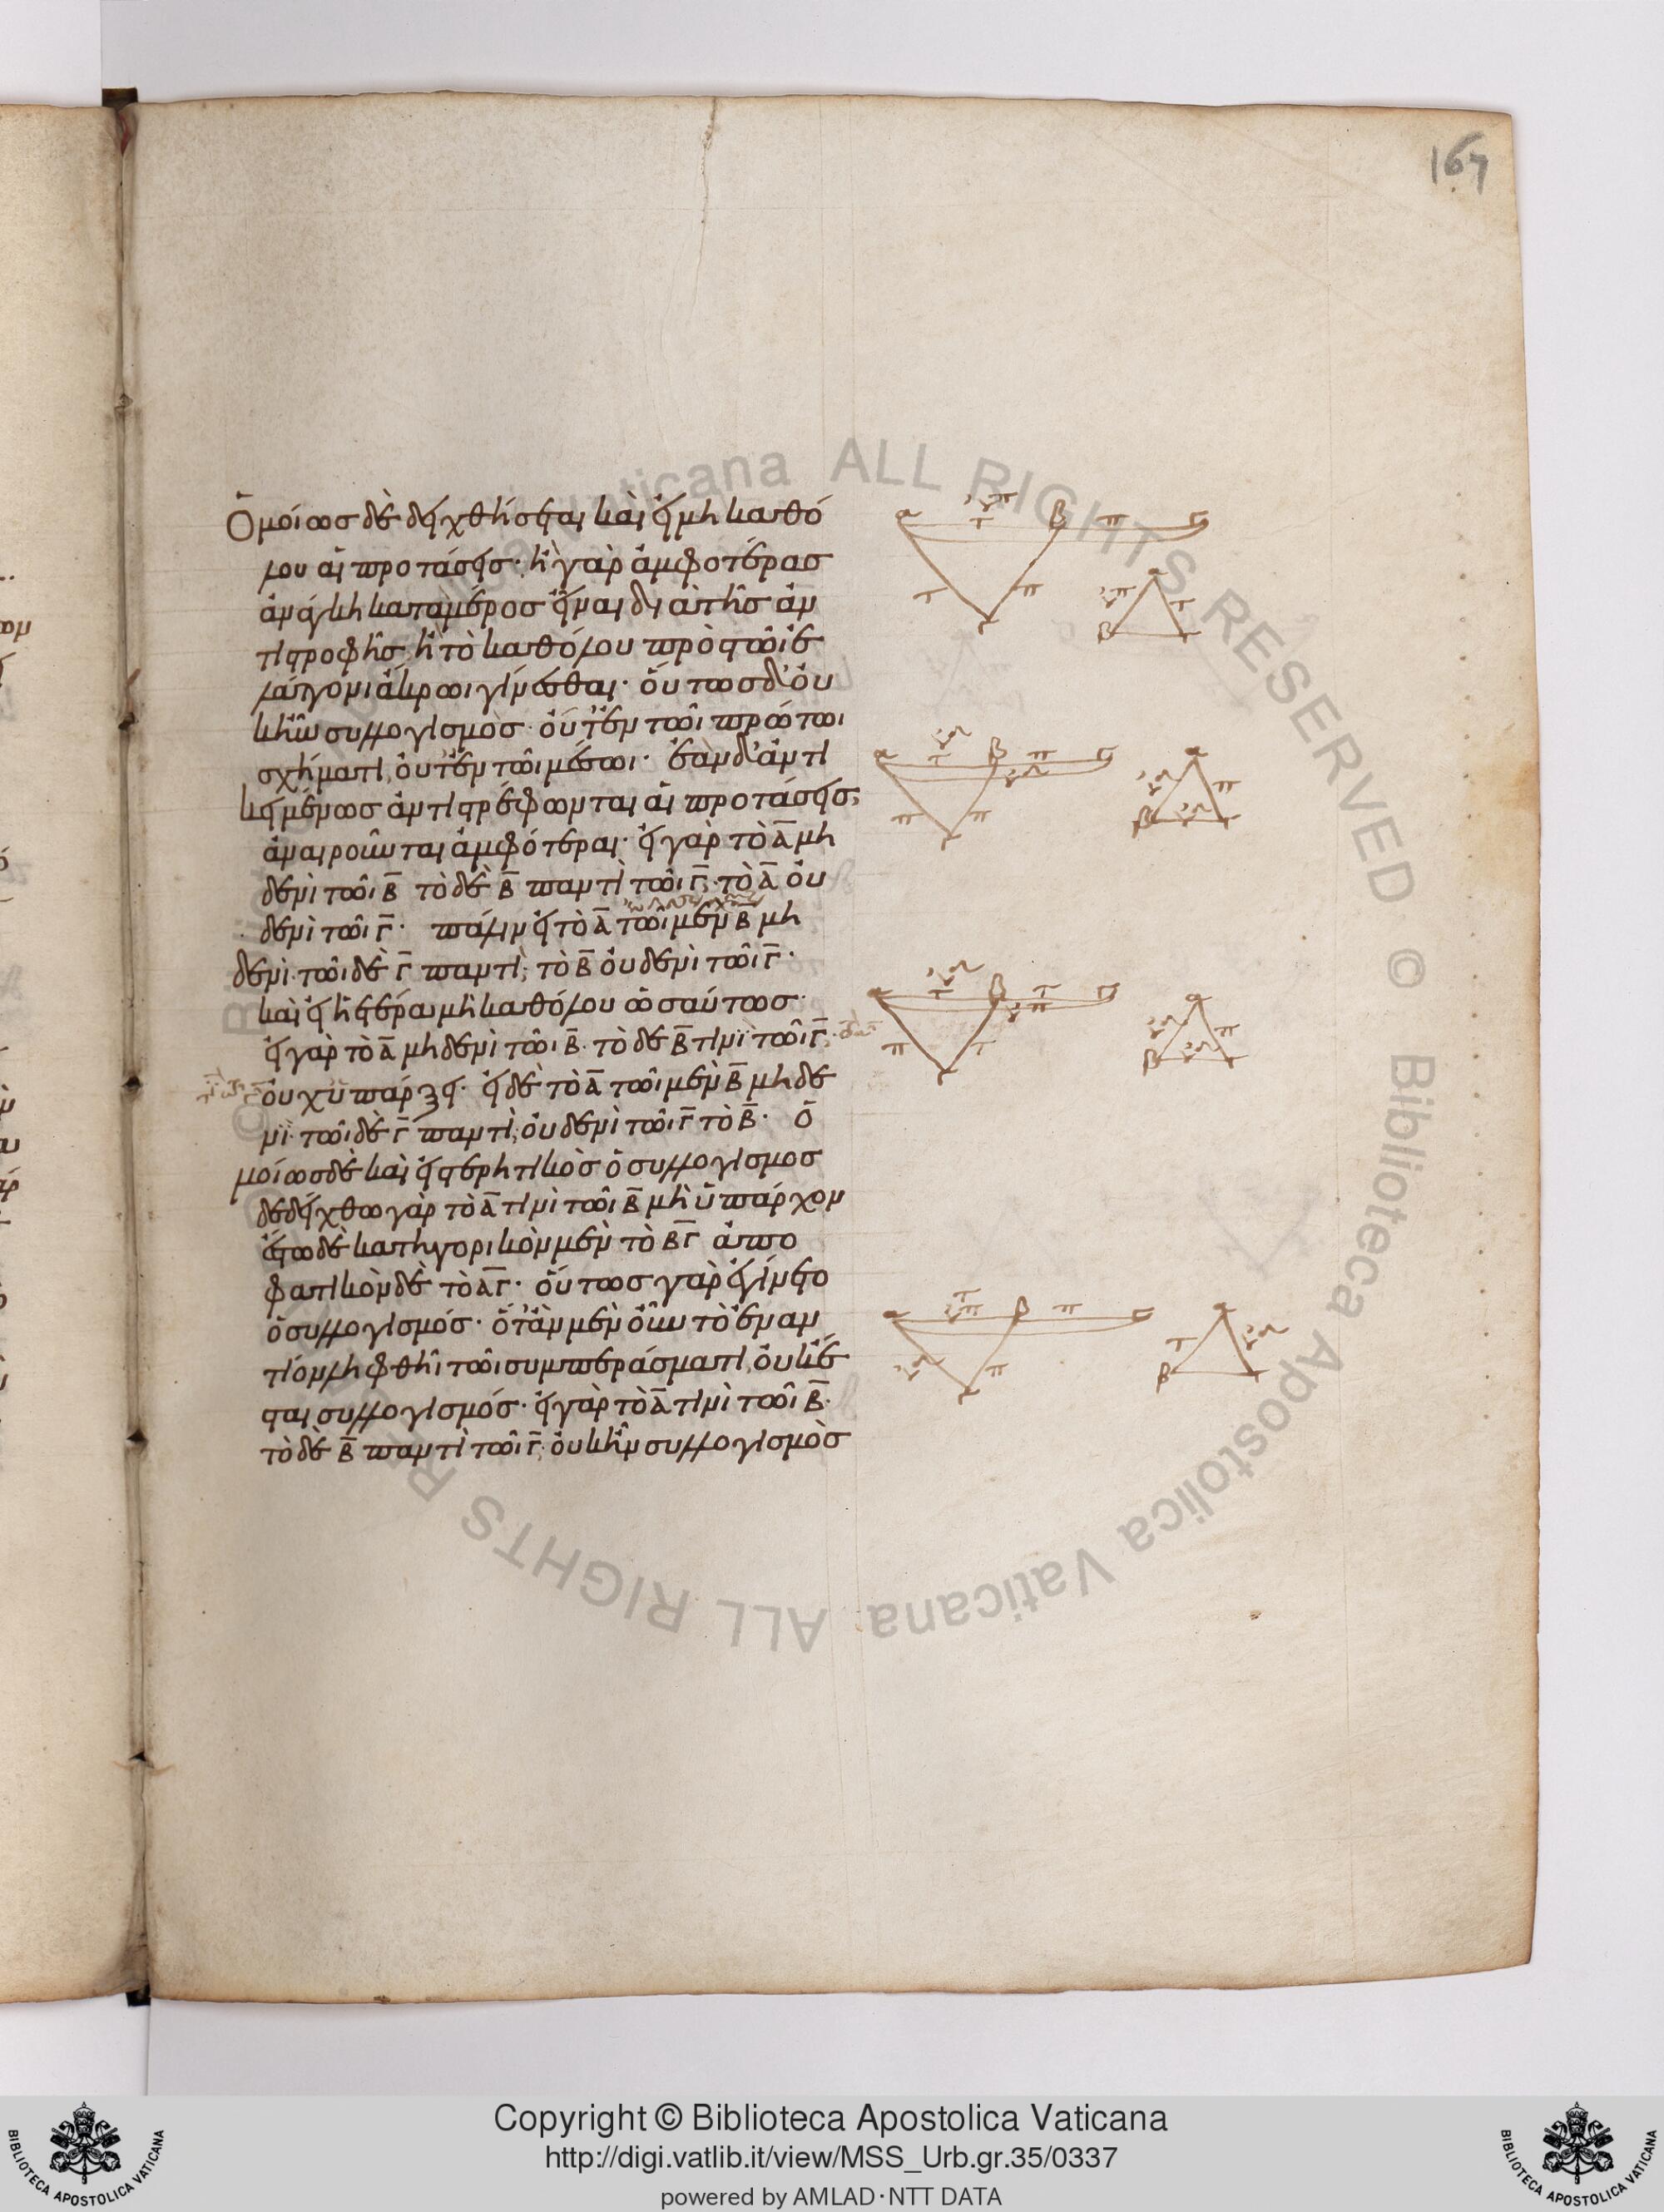 167
Ὁμοίωσ δὲ δειχθήσεται καὶ εἰ μὴ καθό
λου αἱ προτάσεις· ἢ γὰρ ἀμφοτέρας
ἀνάγκη κατὰ μέρος εἶναι διὰ τῆς ἀν
τιστροφῆς· ἢ τὸ καθόλου πρὸς τῶι ἐ
λάττονι ἄκρωι γίνεσθαι· οὕτως δ' οὐ
κ ἦν συλλογισμὸς· οὔτ' ἐν τῶι πρώτωι
σχήματι, οὔτ' ἐν τῶι μέσωι· ἐὰν δ' ἀντι
κειμένως ἀντιστρέφωνται αἱ προτάσεις,
ἀναιροῦνται ἀμφότεραι· εἰ γὰρ τὸ Α̅ μη
δενὶ τῶι Β̅ τὸ δὲ Β̅ παντὶ τῶι Γ̅, τὸ Α̅ οὐ
δενὶ τῶι Γ̅· πάλιν εἰ τὸ Α̅ τῶι μὲν Β̅ μη
δενὶ· τῶι δὲ Γ̅ παντὶ, τὸ Β̅ οὐδενὶ τῶι Γ̅·
καὶ εἰ ἡ ἑτέρα μὴ καθόλου ὡσαύτως·
εἰ γὰρ τὸ Α̅ μηδενὶ τῶι Β̅· τὸ δὲ Β̅ τινὶ τῶι Γ̅·
οὐχ ὑπάρξει· εἰ δὲ τὸ Α̅ τῶι μὲν Β̅ μηδε
νὶ· τῶι δὲ Γ̅ παντὶ, οὐδενὶ τῶι Γ̅ τὸ Β̅· Ὁ
μοίως δὲ καὶ εἰ στερητικὸς ὁ συλλογισμος
δεδείχθω γὰρ τὸ Α̅ τινὶ τῶι Β̅ μὴ ὑπάρχον
ἔστω δὲ κατηγορικὸν μὲν τὸ Β̅Γ̅ ἀπο
φατικὸν δὲ τὸ Α̅Γ̅· οὕτως γὰρ ἐγίνετο
ὁ συλλογισμός· ὅταν μὲν οὖν τὸ ἐναν
τίον ληφθῆι τῶι συμπεράσματι, οὐκ ἔσ
ται συλλογισμός· εἰ γὰρ τὸ Α̅ τινὶ τῶι Β̅·
τὸ δὲ Β̅ παντὶ τῶι Γ̅· οὐκ ἦν συλλογισμὸς
Copyright © Biblioteca Apostolica Vaticana
http://digi.vatlib.it/view/MSS_Urb.gr.35/0337
powered by AMLAD·NTT DATA
BIBLIOTECA APOSTOLICA VATICANA
BIBLIOTECA APOSTOLICA VATICANA
© Biblioteca Apostolica Vaticana ALL RIGHTS RESERVED © Biblioteca Apostolica Vaticana ALL RIGHTS RESERVED